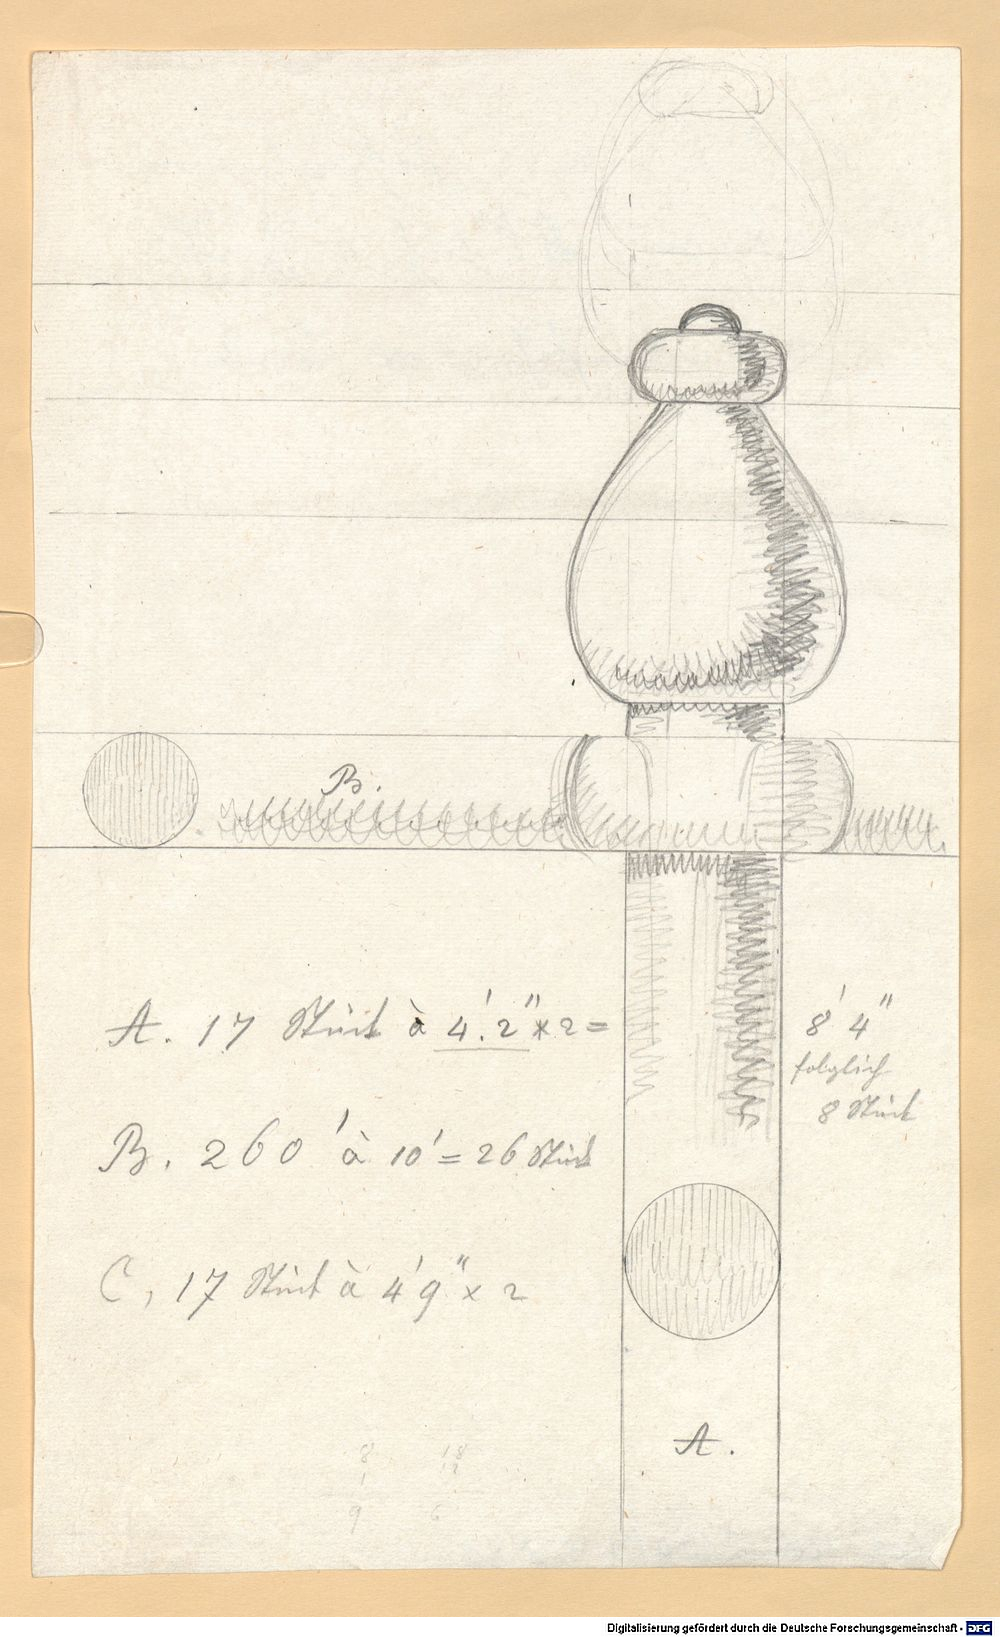 B.
A. 17 Stück à 4.' 2" × 2 = 8' 4"
folglich
8 Stück
B. 260' à 10' = 26 Stück
C, 17 Stück à 4' 9" × 2
A.
8 18
1 12
9 6
Digitalisierung gefördert durch die Deutsche Forschungsgemeinschaft - DFG